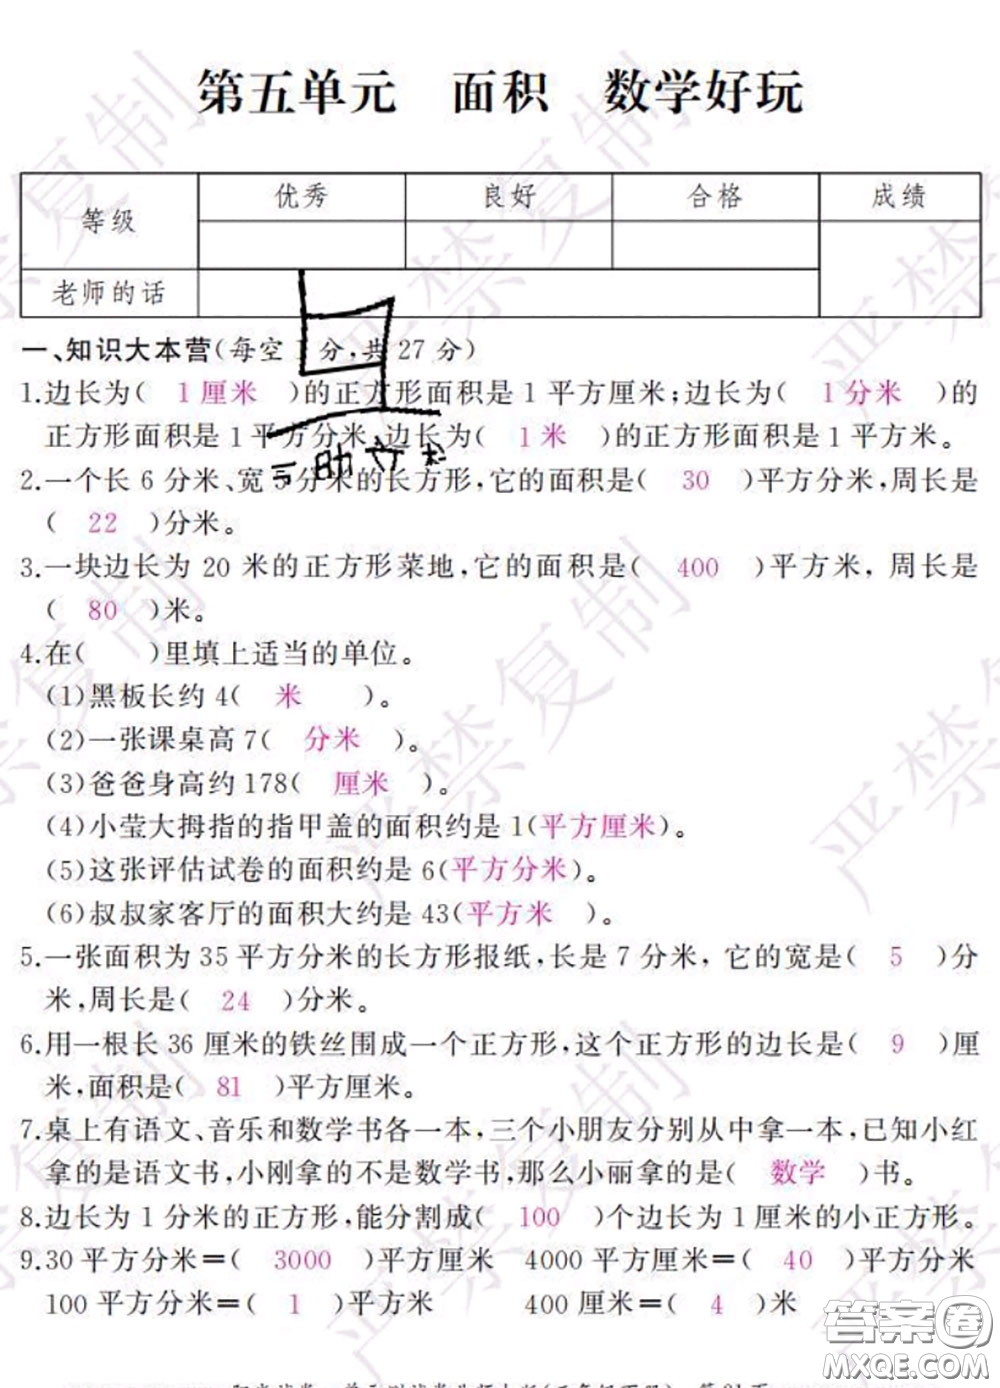 第五单元 面积 数学好玩
等级 优秀 良好 合格 成绩
老师的话
一、知识大本营(每空 分,共 27 分)
1.边长为( 1厘米 )的正方形面积是 1 平方厘米;边长为( 1分米 )的
正方形面积是 1 平方分米,边长为( 1米 )的正方形面积是 1 平方米。
2.一个长 6 分米、宽 5 分米的长方形,它的面积是( 30 )平方分米,周长是
( 22 )分米。
3.一块边长为 20 米的正方形菜地,它的面积是( 400 )平方米,周长是
( 80 )米。
4.在( )里填上适当的单位。
(1)黑板长约 4( 米 )。
(2)一张课桌高 7( 分米 )。
(3)爸爸身高约 178( 厘米 )。
(4)小莹大拇指的指甲盖的面积约是 1(平方厘米)。
(5)这张评估试卷的面积约是 6(平方分米)。
(6)叔叔家客厅的面积大约是 43(平方米 )。
5.一张面积为 35 平方分米的长方形报纸,长是 7 分米,它的宽是( 5 )分
米,周长是( 24 )分米。
6.用一根长 36 厘米的铁丝围成一个正方形,这个正方形的边长是( 9 )厘
米,面积是( 81 )平方厘米。
7.桌上有语文、音乐和数学书各一本,三个小朋友分别从中拿一本,已知小红
拿的是语文书,小刚拿的不是数学书,那么小丽拿的是( 数学 )书。
8.边长为 1 分米的正方形,能分割成( 100 )个边长为 1 厘米的小正方形。
9.30 平方分米=( 3000 )平方厘米 4000 平方厘米=( 40 )平方分米
100 平方分米=( 1 )平方米 400 厘米=( 4 )米
答案圈
MXQE.COM
严禁复制